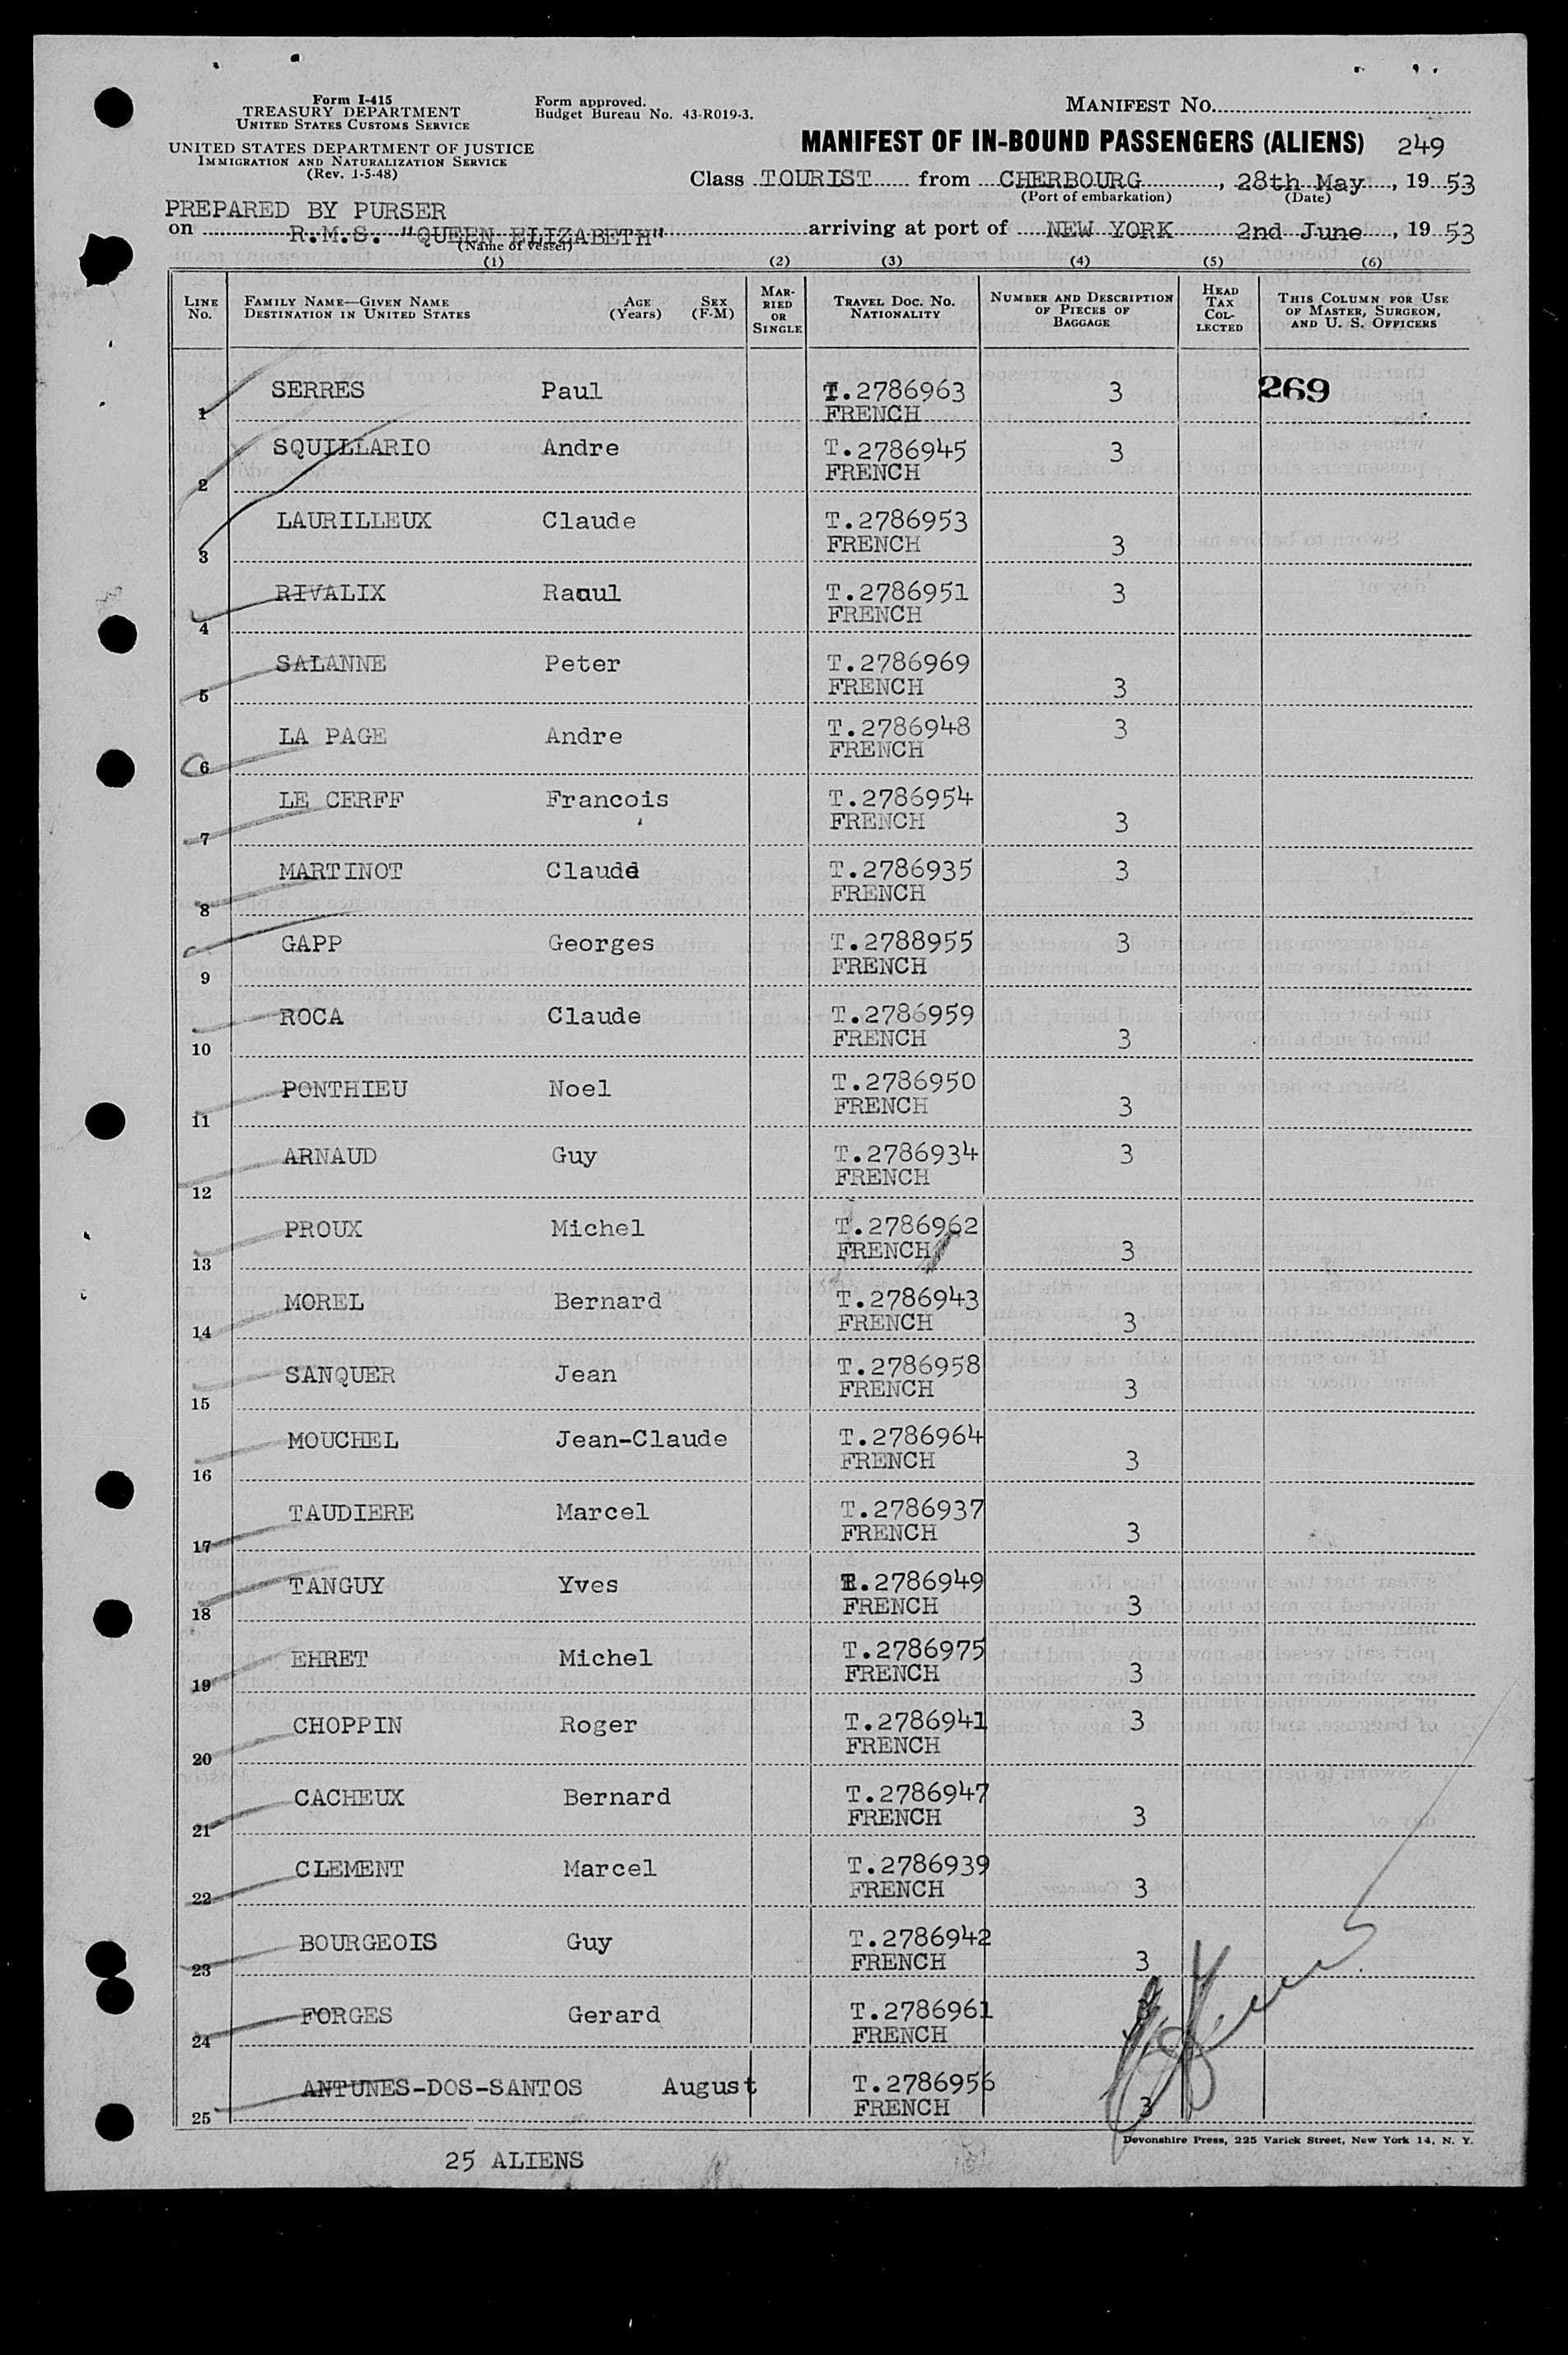 Form I-415
TREASURY DEPARTMENT
UNITED STATES CUSTOMS SERVICE
UNITED STATES DEPARTMENT OF JUSTICE
IMMIGRATION AND NATURALIZATION SERVICE
(Rev. 1-5-48)
Form approved.
Budget Bureau No. 43-R019-3.
MANIFEST NO.
MANIFEST OF IN-BOUND PASSENGERS (ALIENS) 249
Class TOURIST from CHERBOURG, 28th May, 1953
(Port of embarkation) (Date)
PREPARED BY PURSER
on R.M.S. "QUEEN ELIZABETH" arriving at port of NEW YORK 2nd June, 1953
(Name of vessel)
(1) (2) (3) (4) (5) (6)
LINE No. FAMILY NAME—GIVEN NAME DESTINATION IN UNITED STATES AGE (Years) SEX (F-M) MARRIED OR SINGLE TRAVEL DOC. NO. NATIONALITY NUMBER AND DESCRIPTION OF PIECES OF BAGGAGE HEAD TAX COLLECTED THIS COLUMN FOR USE OF MASTER, SURGEON, AND U. S. OFFICERS
1 SERRES Paul T.2786963 FRENCH 3 269
2 SQUILLARIO Andre T.2786945 FRENCH 3
3 LAURILLEUX Claude T.2786953 FRENCH 3
4 RIVALIX Raoul T.2786951 FRENCH 3
5 SALANNE Peter T.2786969 FRENCH 3
6 LA PAGE Andre T.2786948 FRENCH 3
7 LE CERFF Francois T.2786954 FRENCH 3
8 MARTINOT Claude T.2786935 FRENCH 3
9 GAPP Georges T.2788955 FRENCH 3
10 ROCA Claude T.2786959 FRENCH 3
11 PONTHIEU Noel T.2786950 FRENCH 3
12 ARNAUD Guy T.2786934 FRENCH 3
13 PROUX Michel T.2786962 FRENCH 3
14 MOREL Bernard T.2786943 FRENCH 3
15 SANQUER Jean T.2786958 FRENCH 3
16 MOUCHEL Jean-Claude T.2786964 FRENCH 3
17 TAUDIERE Marcel T.2786937 FRENCH 3
18 TANGUY Yves T.2786949 FRENCH 3
19 EHRET Michel T.2786975 FRENCH 3
20 CHOPPIN Roger T.2786941 FRENCH 3
21 CACHEUX Bernard T.2786947 FRENCH 3
22 CLEMENT Marcel T.2786939 FRENCH 3
23 BOURGEOIS Guy T.2786942 FRENCH 3
24 FORGES Gerard T.2786961 FRENCH 3
25 ANTUNES-DOS-SANTOS August T.2786956 FRENCH 3
Devonshire Press, 225 Varick Street, New York 14, N. Y.
25 ALIENS